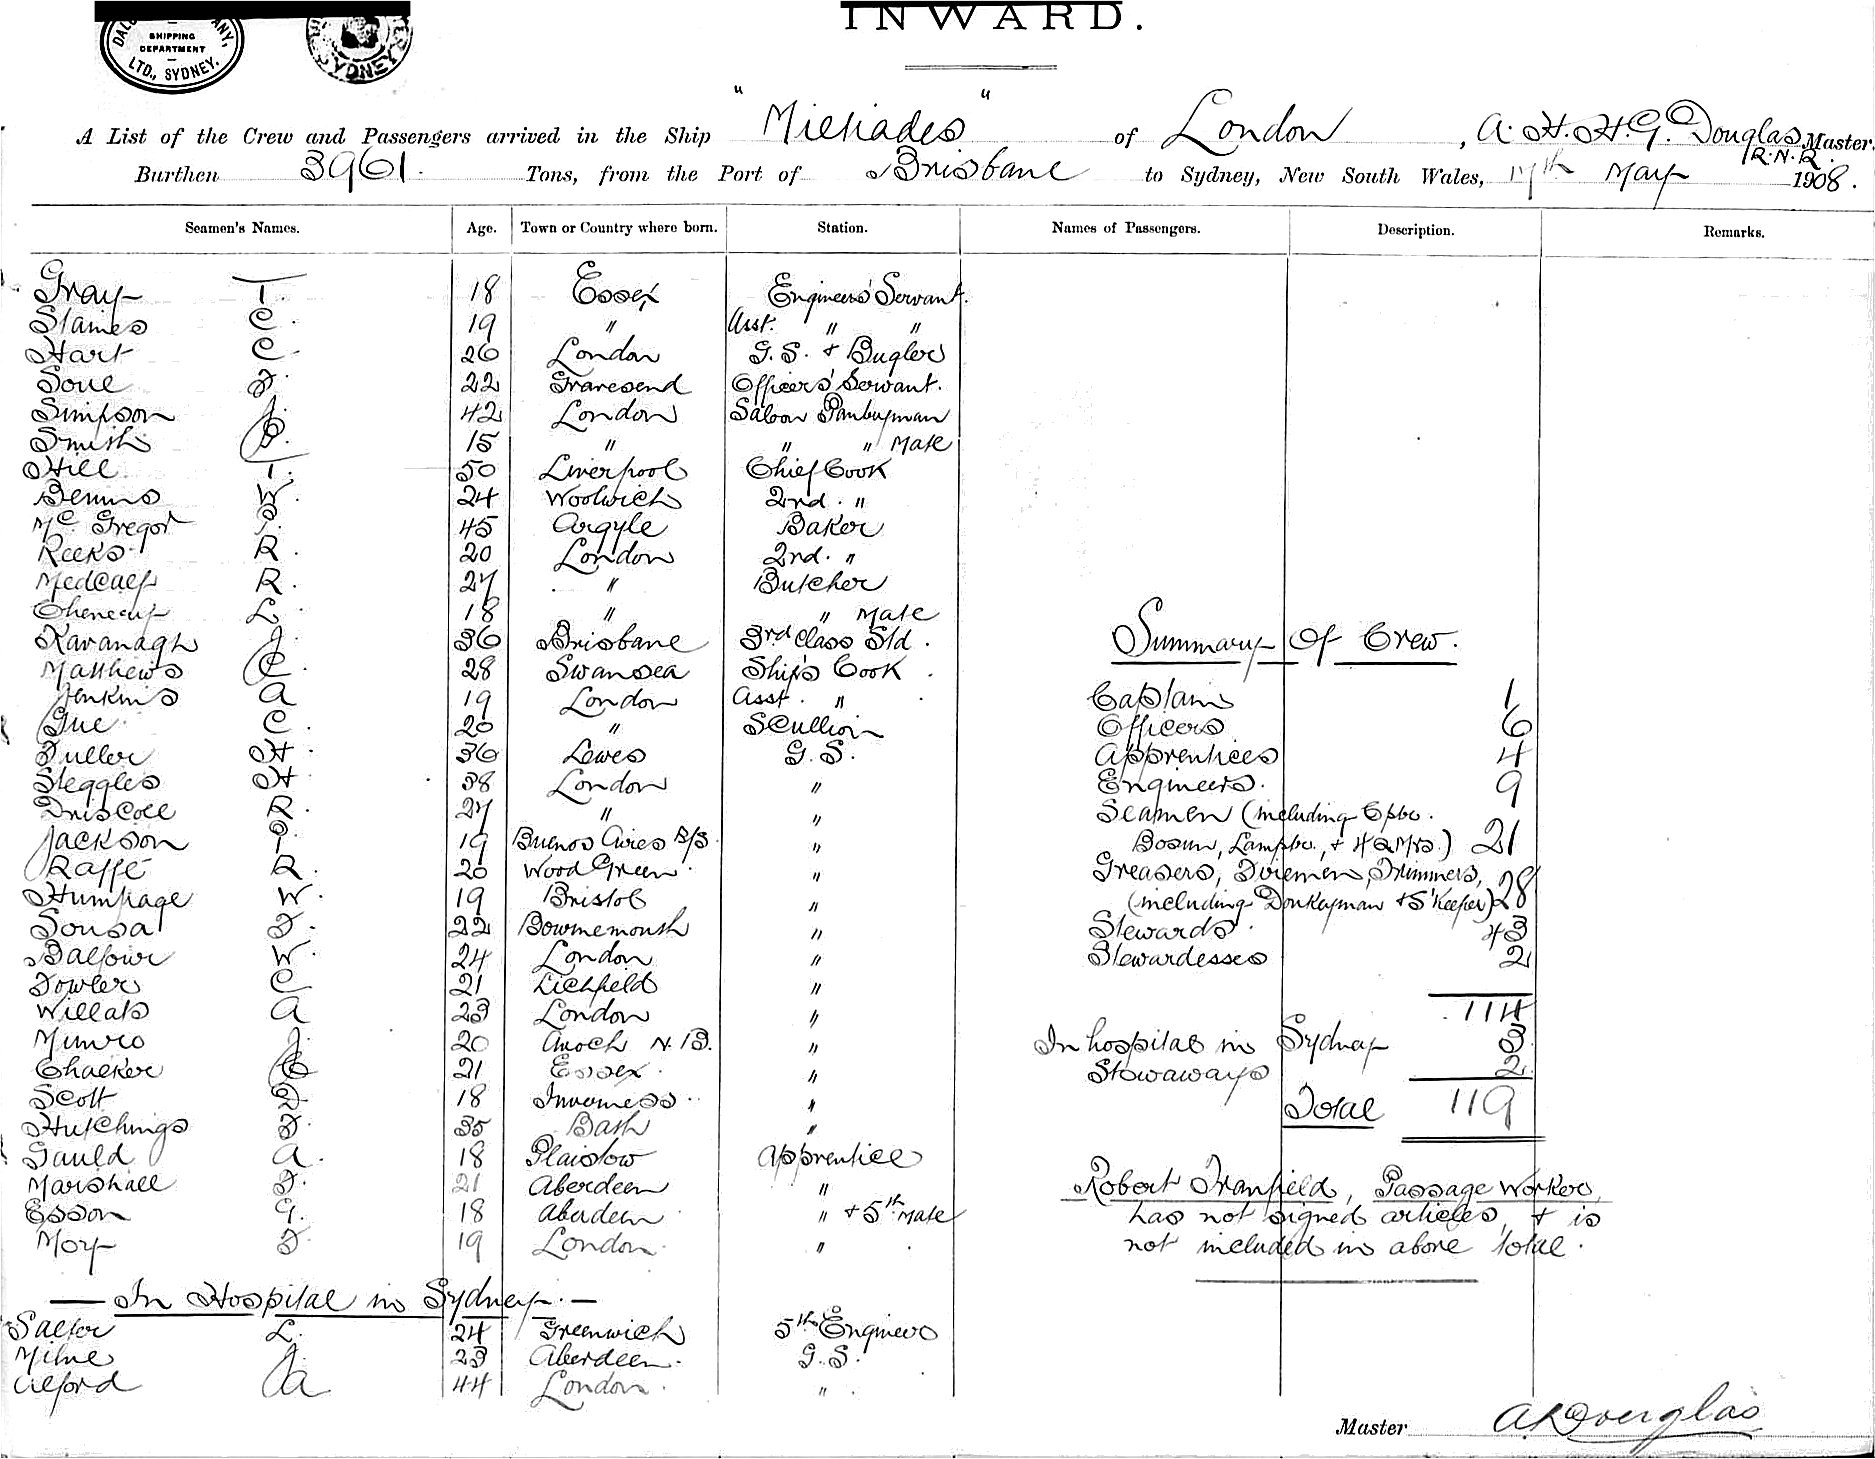 INWARD.
SHIPPING
DEPARTMENT
LTD., SYDNEY.
SYDNEY
A List of the Crew and Passengers arrived in the Ship "Miltiades" of London, A. H. H. G. Douglas Master.
R.N.R.
Burthen 3961. Tons, from the Port of Brisbane to Sydney, New South Wales, 17th May 1908.
Seamen's Names. Age. Town or Country where born. Station. Names of Passengers. Description. Remarks.
Gray T. 18 Essex Engineers' Servant.
Staines C. 19 " Asst. " "
Hart C. 26 London G.S. + Bugler
Soue F. 22 Gravesend Officers' Servant.
Simpson J. 42 London Saloon Pantryman
Smith 15 " " " Mate
Hill T. 50 Liverpool Chief Cook
Dennis W. 24 Woolwich 2nd. "
McGregor 45 Argyle Baker
Reeks R. 20 London 2nd. "
Medcalf R. 27 " Butcher
L. 18 " " Mate
Kavanagh J. 36 Brisbane 3rd Class Std.
Matthews C. 28 Swansea Ship's Cook
Jenkins A 19 London Asst. "
Gue C. 20 " Scullion
Fuller H. 36 Lewes G.S.
Steggles H. 38 London "
Driscoll R. 27 " "
Jackson P. 19 Buenos Aires B/S. "
Raffe R. 20 Wood Green "
Humpage W. 19 Bristol "
Sousa F. 22 Bournemouth "
Balfour W. 24 London "
Fowler C 21 Lichfield "
Willats A 23 London "
Munro J. 20 Avoch N.B. "
Chalker 21 Essex "
Scott D. 18 Inverness "
Hutchings F. 35 Bath "
Gauld A. 18 Plaistow Apprentice
Marshall F. 21 Aberdeen "
Esson G. 18 Aberdeen " + 5th Mate
Mory F. 19 London "
— In Hospital in Sydney. —
Salter L. 24 Greenwich 5th Engineer
Milne J. 23 Aberdeen. G.S.
Alford A 44 London. "
Summary of Crew.
Captain 1
Officers 6
Apprentices 4
Engineers. 9
Seamen (including Cpbr.
Bosun, Lampbr., + 4 QMrs.) 21
Greasers, Firemen, Trimmers,
(including Donkeyman + S'Keeper) 28
Stewards. 43
Stewardesses 2
114
In hospital in Sydney 3
Stowaways 2
Total 119
Robert Tranfield, Passage Worker,
has not signed articles, + is
not included in above total.
Master A.H.Douglas